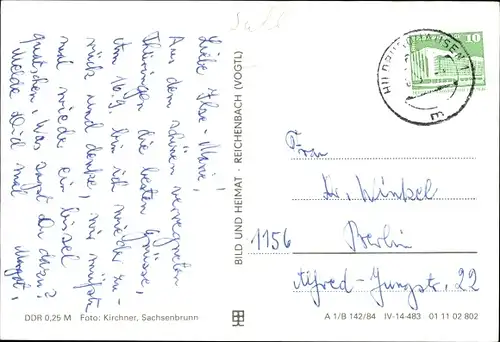 Liebe Ilse-Marie!
Aus dem schönen verregneten
Thüringen die besten Grüsse,
Am 16.9. bin ich wieder zu-
rück und denke, wir müssten
mal wieder ein bissel
quatschen. Was sagst Du dazu?
Melde Dich mal Margot.
BILD UND HEIMAT · REICHENBACH (VOGTL)
HILDBURGHAUSEN 1
10
Frau
Dr. Winkel
1156 Berlin
Alfred-Jungstr. 22
DDR 0,25 M Foto: Kirchner, Sachsenbrunn
A 1/B 142/84 IV-14-483 01 11 02 802